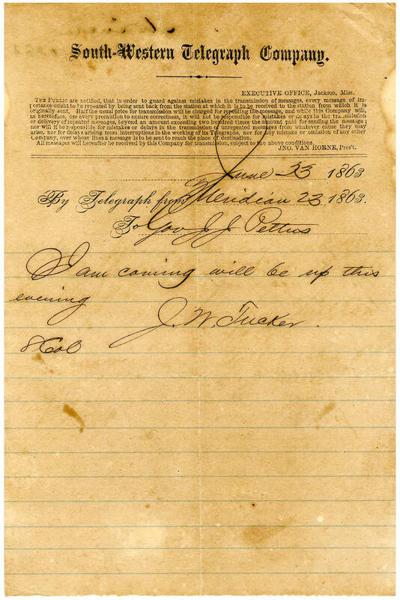 South-Western Telegraph Company.
EXECUTIVE OFFICE, Jackson, Miss.
THE PUBLIC are notified, that in order to guard against mistakes in the transmission of messages, every message of im-
portance ought to be repeated by being sent back from the station at which it is to be received to the station from which it is
originally sent. Half the usual price for transmission will be charged for repeating the message, and while this Company will,
as heretofore, use every precaution to ensure correctness, it will not be responsible for mistakes or delays in the transmission
or delivery of repeated messages, beyond an amount exceeding two hundred times the amount paid for sending the message;
nor will it be responsible for mistakes or delays in the transmission of unrepeated messages from whatever cause they may
arise, nor for delays arising from interruptions in the working of its Telegraphs, nor for any mistake or omission of any other
Company, over whose lines a message is to be sent to reach the place of destination.
All messages will hereafter be received by this Company for transmission, subject to the above conditions.
JNO. VAN HORNE, Pres't.
June 23 1863
By Telegraph from Meridian 23 1863.
To Gov J J Pettus
I am coming will be up this
evening
J. W. Tucker.